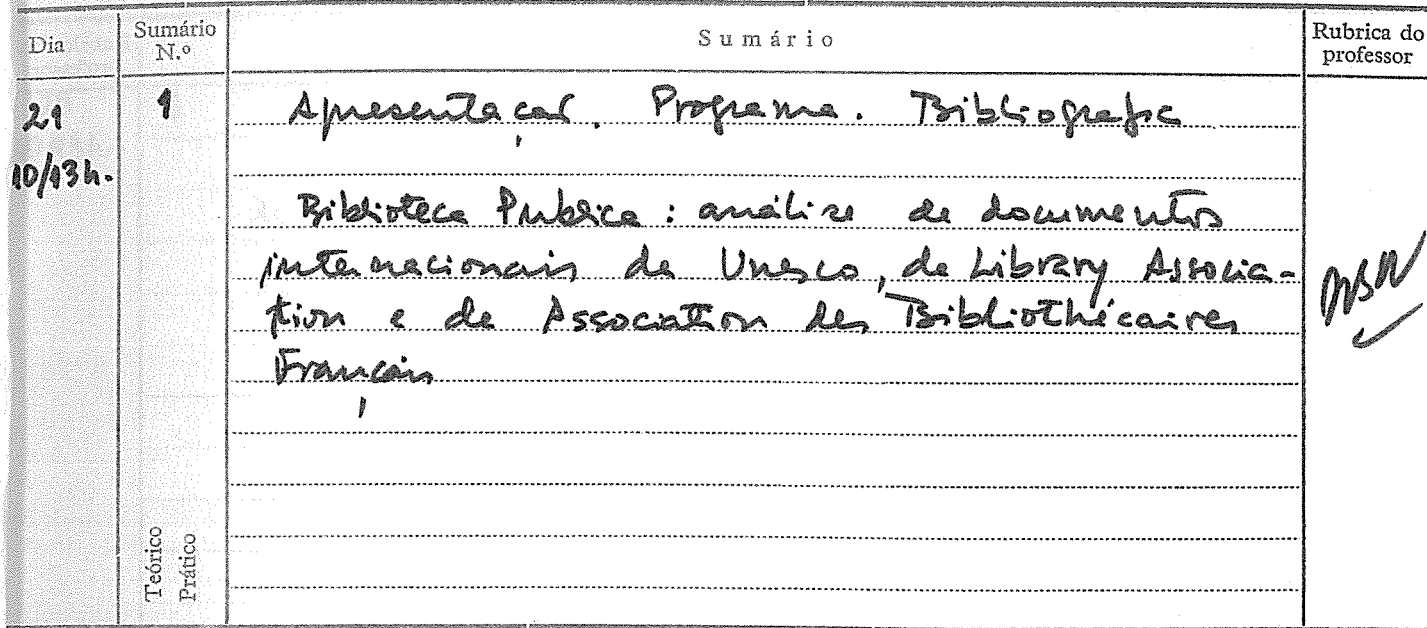 Dia
Sumário N.º
Sumário
Rubrica do professor
21
10/13h.
1
Apresentação. Programa. Bibliografia
Biblioteca Publica: análise de documentos
internacionais da Unesco, da Library Associa-
tion e da Association des Bibliothécaires
Français
Teórico
Prático